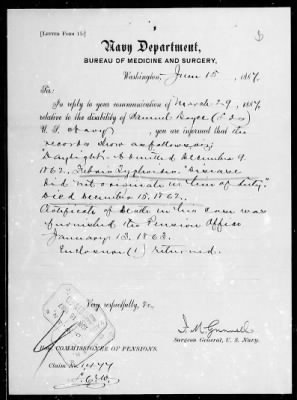 [Letter Form 15.]
Navy Department,
BUREAU OF MEDICINE AND SURGERY,
Washington, June 15, 1887.
Sir:
In reply to your communication of March 29, 1887
relative to the disability of Samuel
U. S. Navy, you are informed that the
records show as follows:
"Daylight" Admitted December 9
1862. Febris Typhoides. "Disease
did not originate in line of duty."
Died December 15. 1862.
Certificate of Death in his case was
furnished the Pension Office
January 13. 1863.
Enclosure (1) returned.
Very respectfully, &c.,
Surgeon General, U. S. Navy.
COMMISSIONER OF PENSIONS.
Claim No. 1477